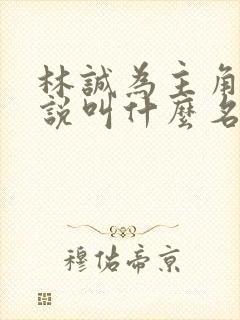 林誠為主角
說叫什麼名
穆佑帝京